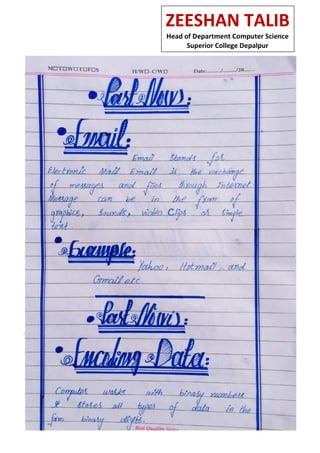 ZEESHAN TALIB
Head of Department Computer Science
Superior College Depalpur
M□T□W□T□F□S H/W□-C/W□ Date:____/____/20____
• Last Now:
• Email:
Email Stands for
Electronic Mail Email is the exchange
of messages and files through Internet
Message can be in the form of
graphics, sounds, video Clips or Simple
text.
• Example:
Yahoo, Hotmail, and
Gmail etc.
• Last Now:
• Encoding Data:
Computer works with binary numbers
& Stores all types of data in the
form binary digits.